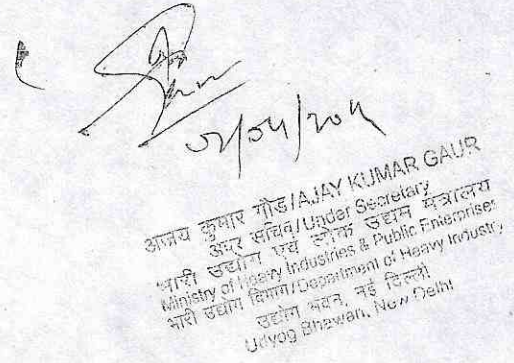 अजय कुमार गौड/AJAY KUMAR GAUR
अपर सचिव/Under Secretary
भारी उद्योग एवं लोक उद्यम मंत्रालय
Ministry of Heavy Industries & Public Enterprises
भारी उद्योग विभाग/Department of Heavy Industry
उद्योग भवन, नई दिल्ली
Udyog Bhawan, New Delhi